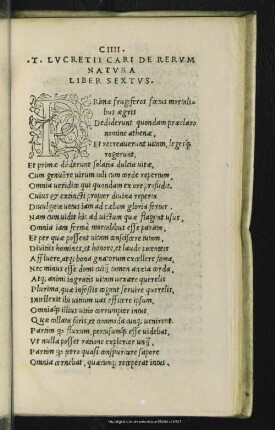 CIIII.
.T. LVCRETII CARI DE RERVM
NATVRA
LIBER SEXTVS.
PRimæ frugiferos fœtus mortali=
bus ægris
Dediderunt quondam præclaro
nomine athenæ,
Et recreauerunt uitam, legesq;
rogarunt.
Et primæ dederunt solatia dulcia uitæ,
Cum genuere uirum tali cum corde repertum,
Omnia ueridico qui quondam ex ore profudit.
Cuius et extincti propter diuina reperta
Diuulgata uetus iam ad cælum gloria fertur.
Nam cum uidit hic ad uictum quæ flagitat usus,
Omnia iam ferme mortalibus esse parata,
Et per quæ possent uitam consistere tutam,
Diuitiis homines, et honore, et laude potentes
Affluere, atq; bona gnatorum excellere fama,
Nec minus esse domi cuiq; tamen anxia corda,
Atq; animi ingratis uitam uexare querelis
Plurima, quæ infestis cogunt seruire querelis,
Intellexit ibi uitium uas efficere ipsum,
Omniaq; illius uitio corrumpier intus,
Quæ collata foris, et commoda cunq; uenirent.
Partim q; fluxum, pertusumq; esse uidebat,
Vt nulla posset ratione explerier unq;.
Partim q; tetro quasi conspurcare sapore
Omnia cernebat, quæcunq; receperat intus.